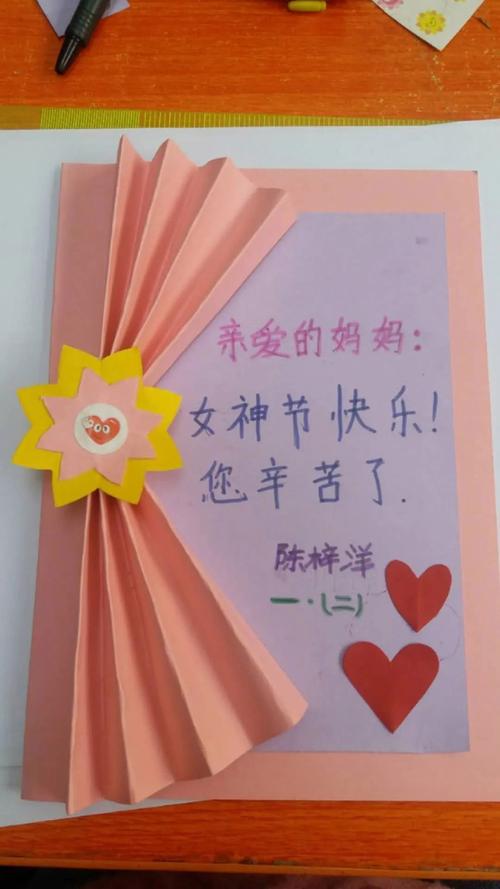 亲爱的妈妈:
女神节快乐!
您辛苦了.
陈梓洋
一·(二)